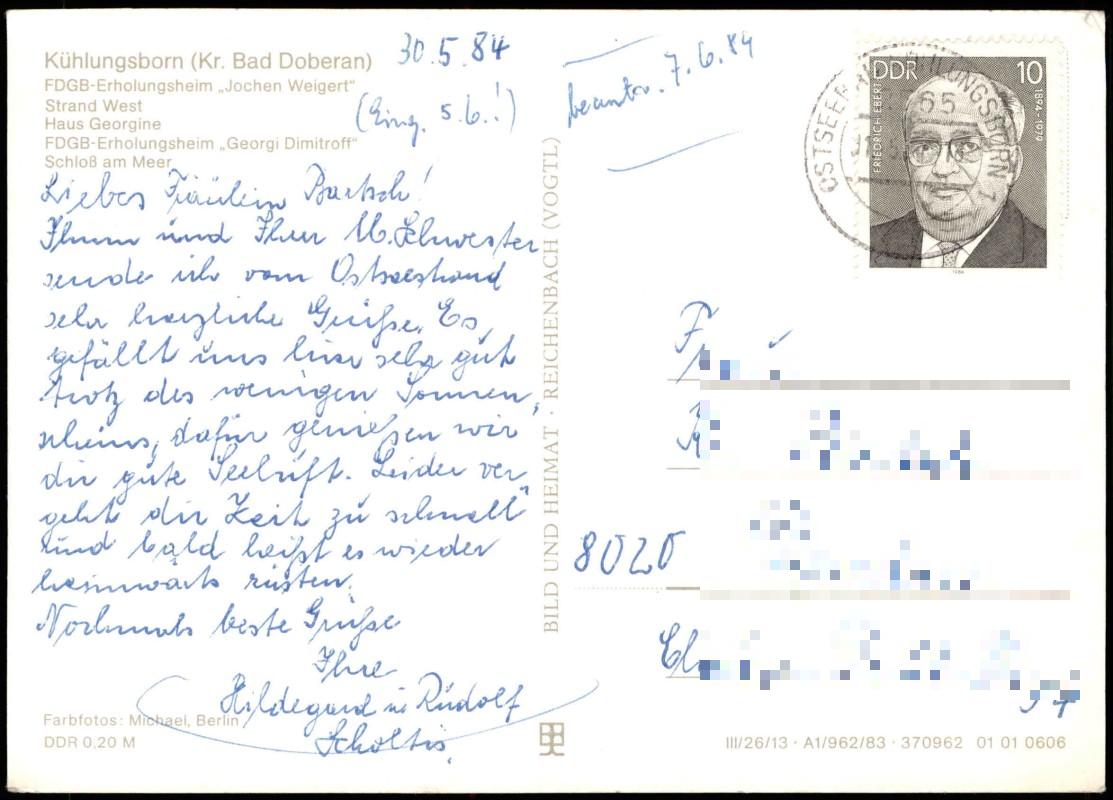 Kühlungsborn (Kr. Bad Doberan)
FDGB-Erholungsheim „Jochen Weigert“
Strand West
Haus Georgine
FDGB-Erholungsheim „Georgi Dimitroff“
Schloß am Meer
30.5.84
(Eing. 5.6.!)
beantw. 7.6.84
Liebes Fräulein Bartsch!
Ihnen und Ihrer Schwester
sende ich vom Ostseestrand
sehr herzliche Grüße. Es
gefällt uns hier sehr gut
trotz des wenigen Sonnen-
scheins, dafür genießen wir
die gute Seeluft. Leider ver-
geht die Zeit zu schnell
und bald heißt es wieder
heimwärts rüsten.
Nochmals beste Grüße
Ihre
Hildegard u. Rudolf
Scholtis.
Farbfotos: Michael, Berlin
DDR 0,20 M
BILD UND HEIMAT · REICHENBACH (VOGTL)
DDR 10
FRIEDRICH EBERT
1894-1979
1984
OSTSEEBAD KÜHLUNGSBORN 1
2565
8020
III/26/13 · A1/962/83 · 370962 01 01 0606